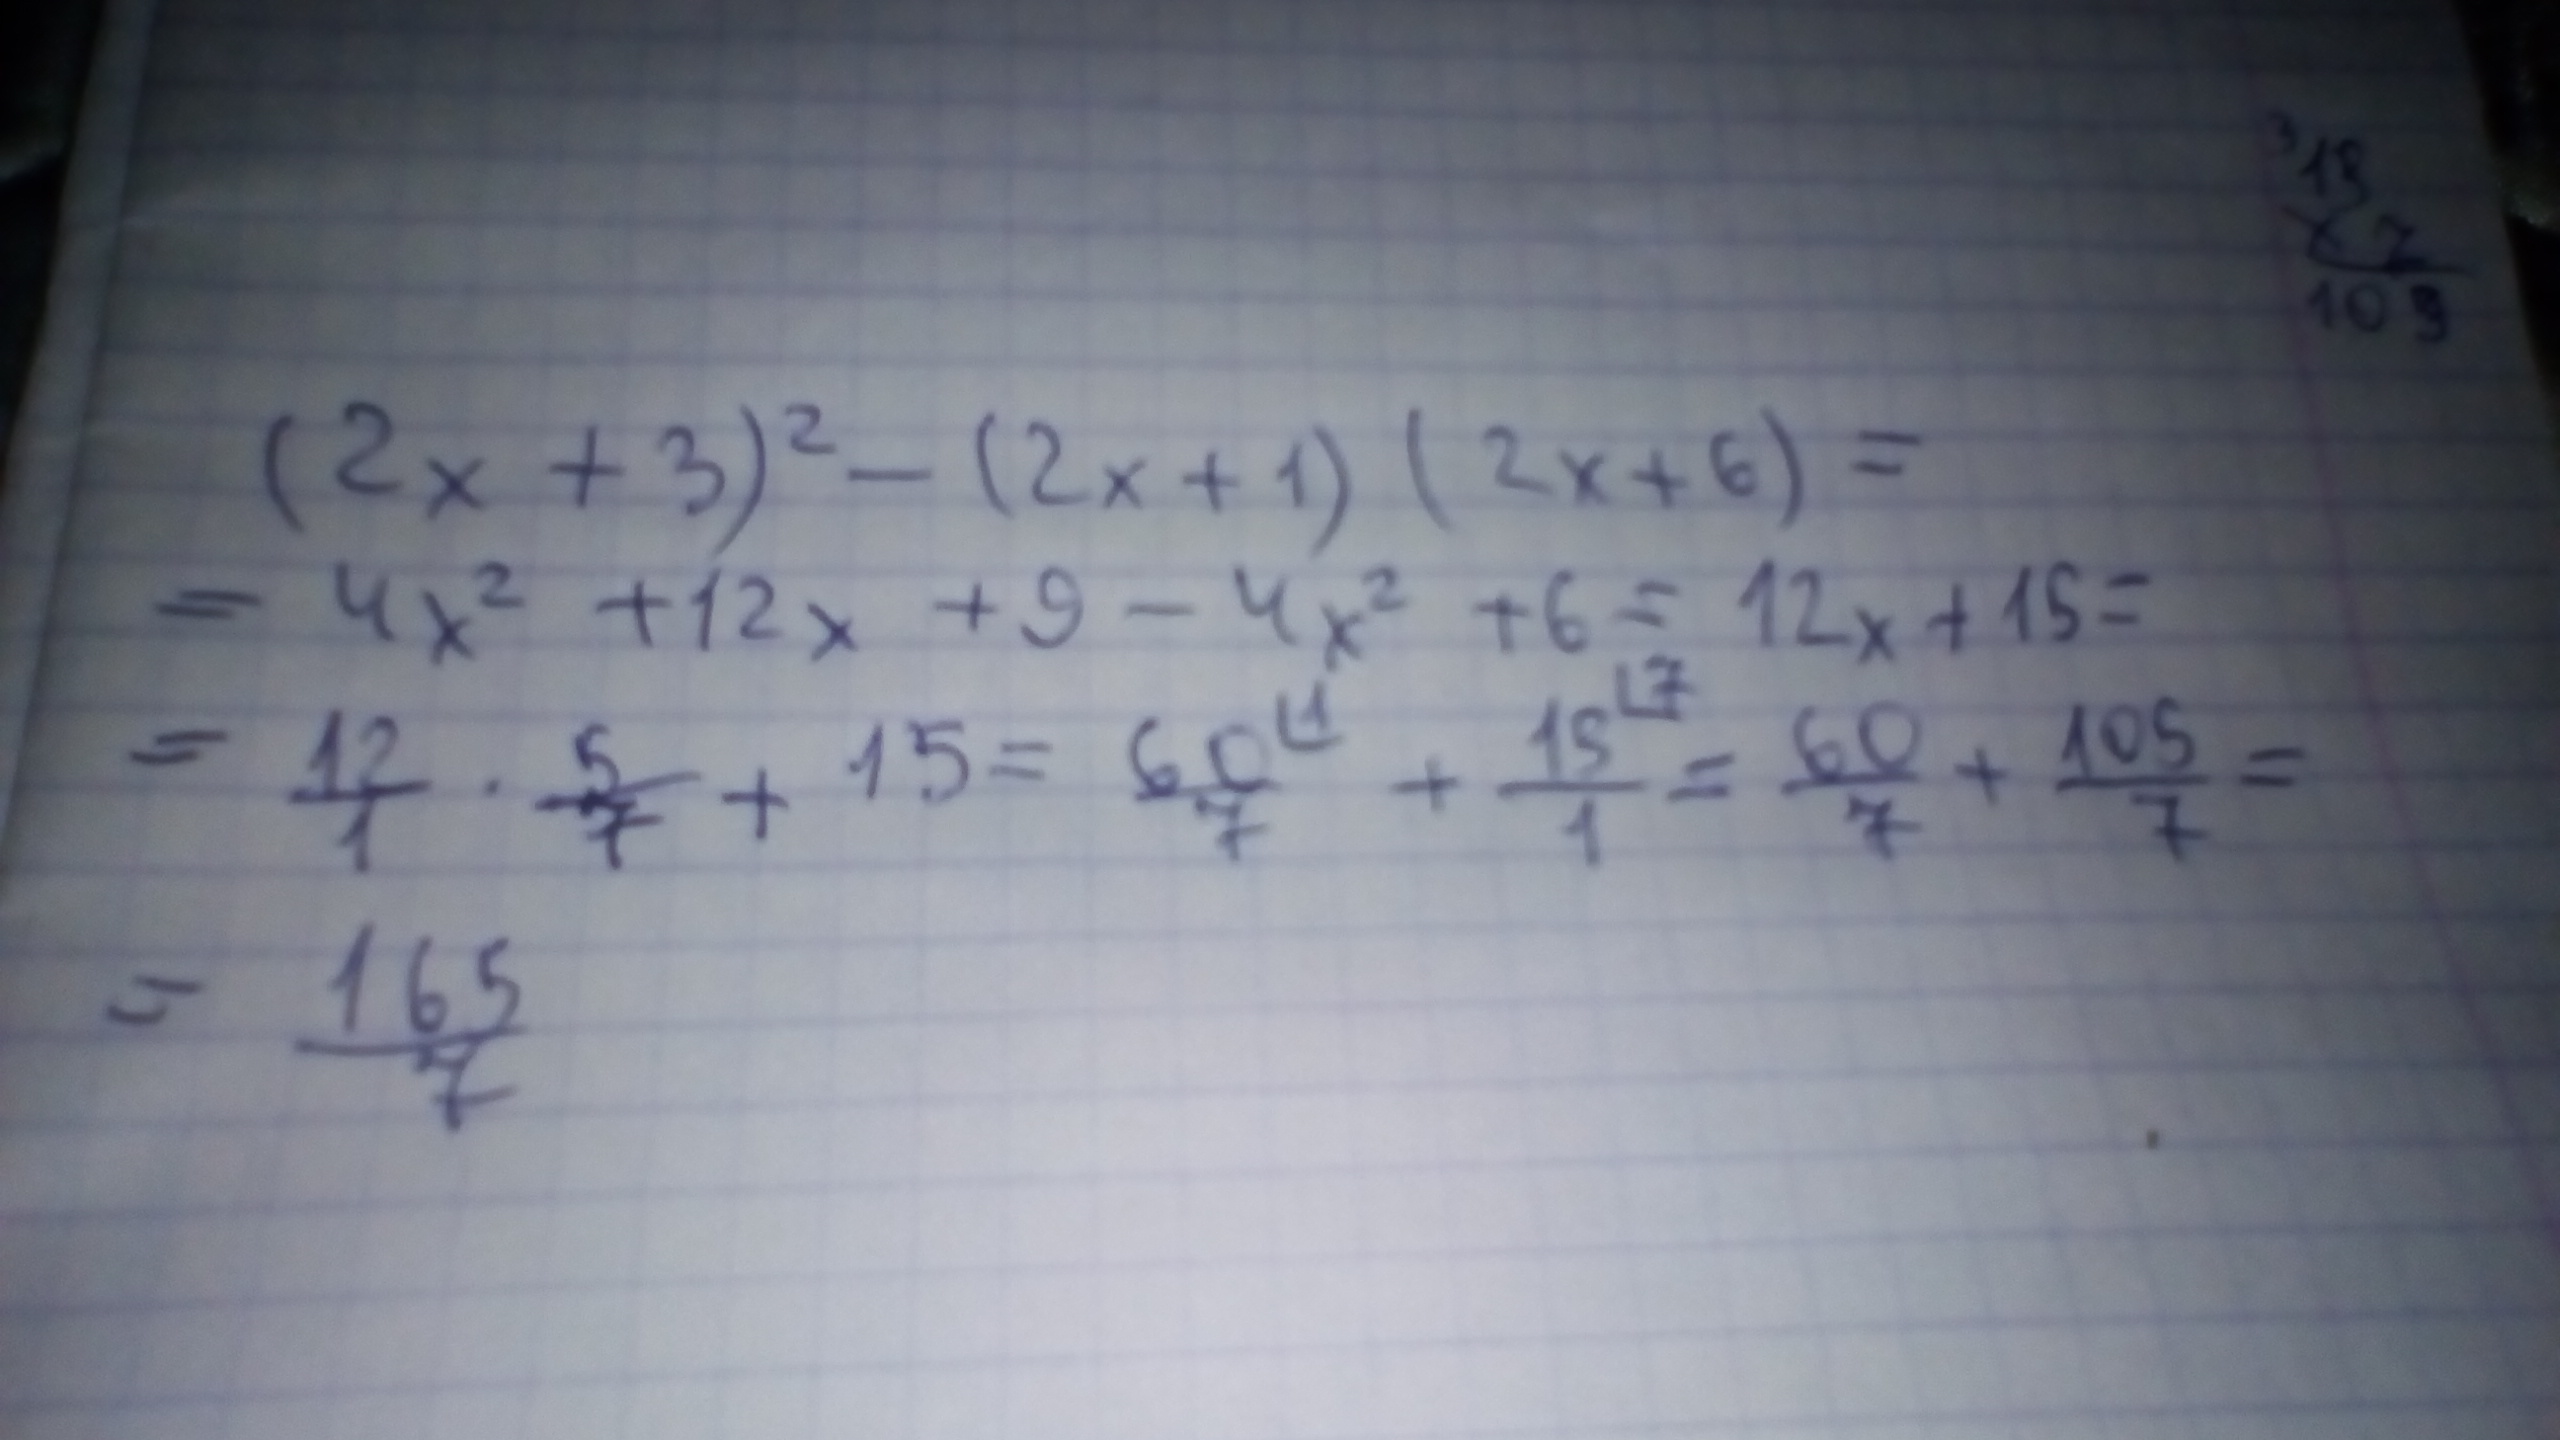 3
15
x 7
105
(2x + 3)² - (2x + 1) (2x + 6) =
= 4x² + 12x + 9 - 4x² + 6 = 12x + 15 =
= 12/1 · 5/7 + 15 = 60/7 ⌊1 + 15/1 ⌊7 = 60/7 + 105/7 =
= 165/7